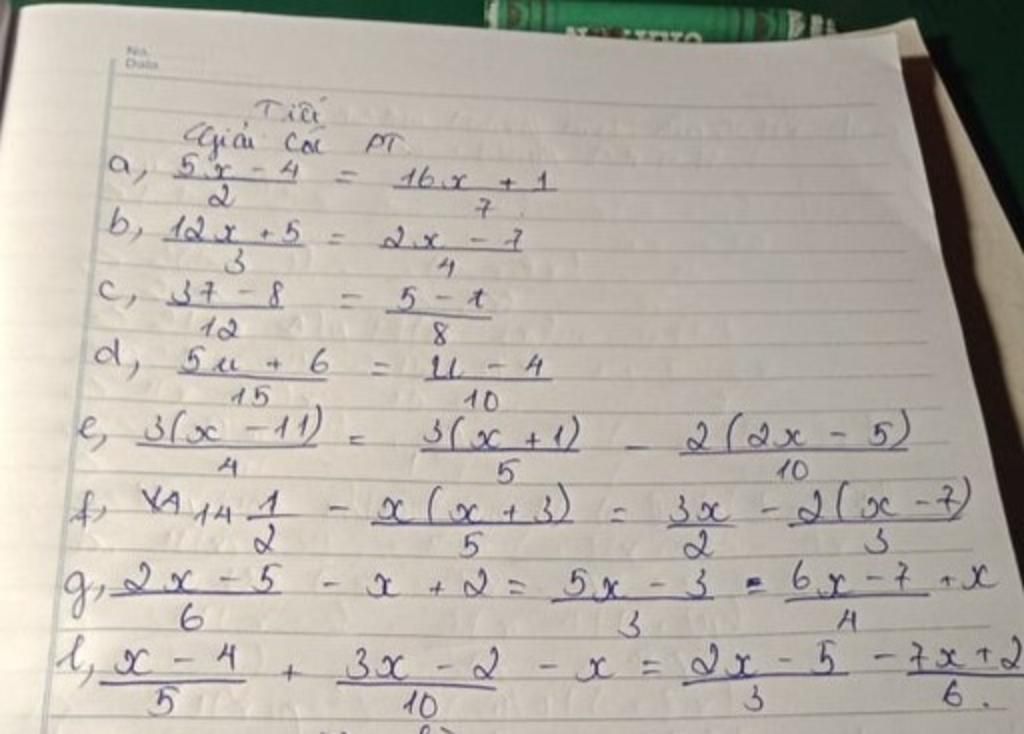 No.
Date
Tiết
Giải các PT
a, 5x - 4 / 2 = 16x + 1 / 7
b, 12x + 5 / 3 = 2x - 7 / 4
c, 37 - 8 / 12 = 5 - 1 / 8
d, 5u + 6 / 15 = u - 4 / 10
e, 3(x - 11) / 4 = 3(x + 1) / 5 - 2(2x - 5) / 10
f, 14 1/2 - x(x + 3) / 5 = 3x / 2 - 2(x - 7) / 3
g, 2x - 5 / 6 - x + 2 = 5x - 3 / 3 = 6x - 7 / 4 + x
l, x - 4 / 5 + 3x - 2 / 10 - x = 2x - 5 / 3 - 7x + 2 / 6.